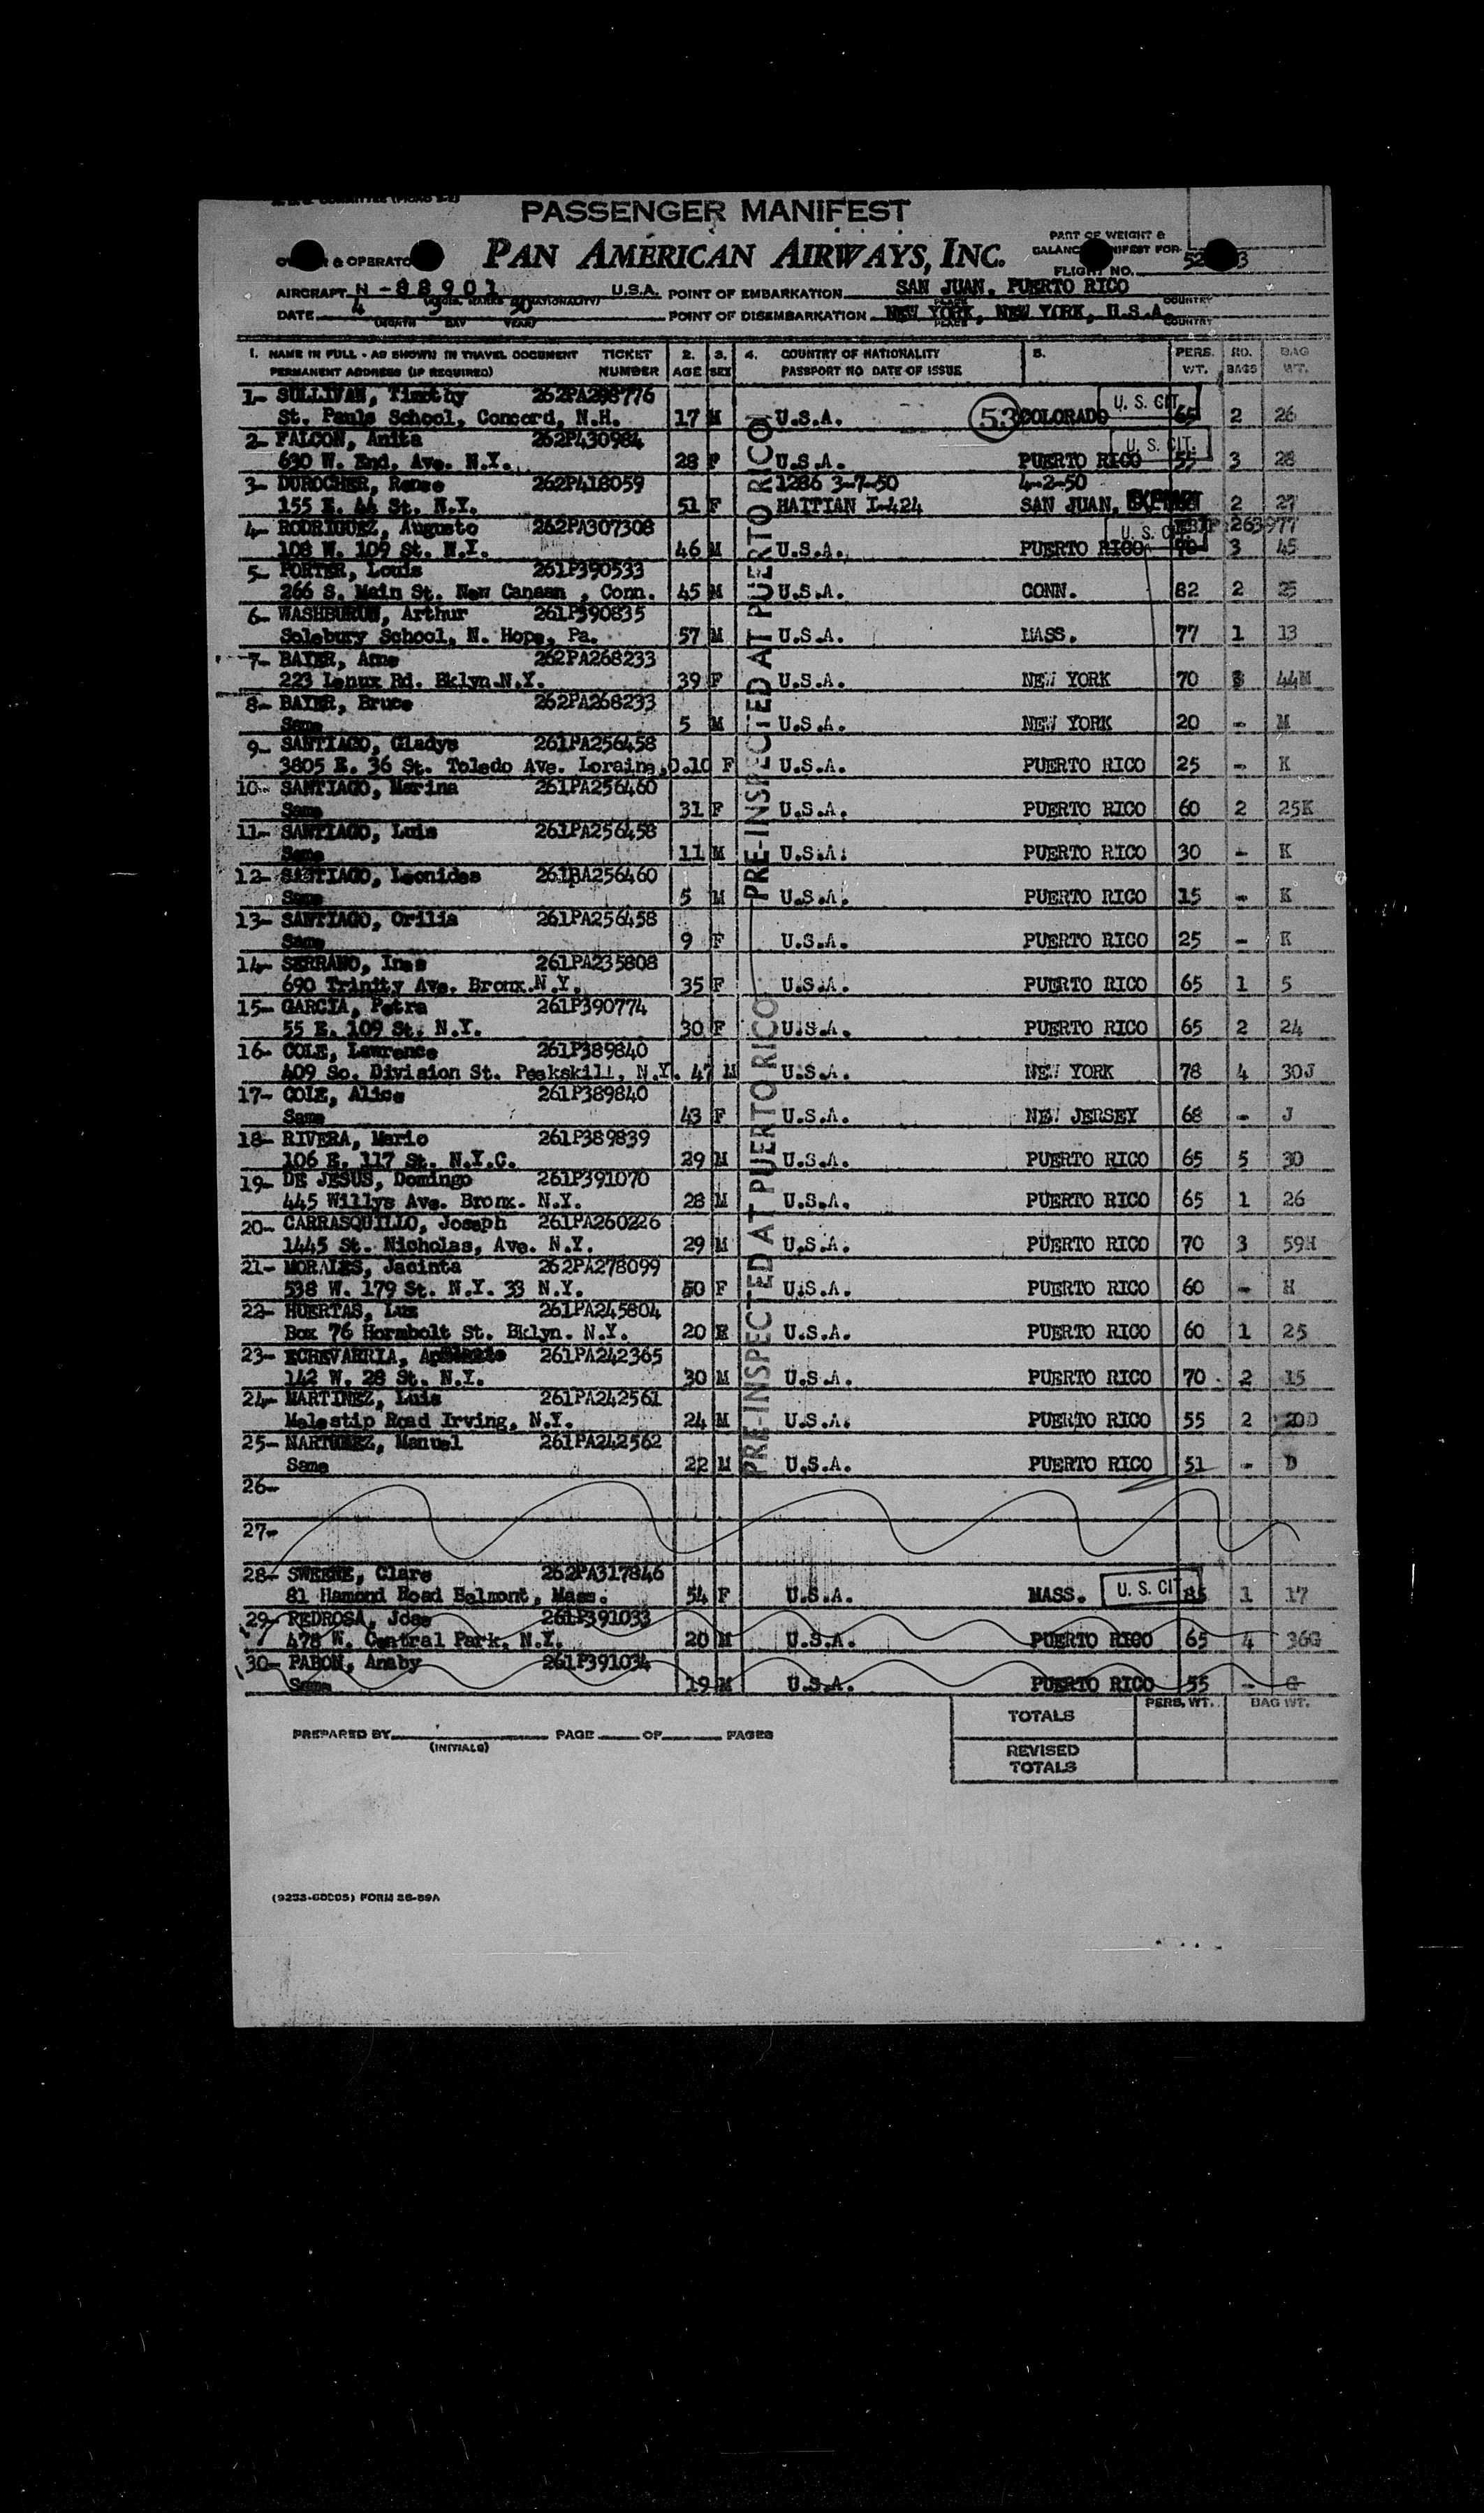 PASSENGER MANIFEST
PAN AMERICAN AIRWAYS, INC.
PART OF WEIGHT &
FLIGHT NO.
AIRCRAFT N-88901 U.S.A. POINT OF EMBARKATION SAN JUAN, PUERTO RICO
DATE 4 3 50 POINT OF DISEMBARKATION NEW YORK, NEW YORK, U.S.A. COUNTRY
(MONTH DAY YEAR) PLACE COUNTRY
1. NAME IN FULL - AS SHOWN IN TRAVEL DOCUMENT TICKET 2. 3. 4. COUNTRY OF NATIONALITY 5. PERS. NO. BAG
PERMANENT ADDRESS (IF REQUIRED) NUMBER AGE SEX PASSPORT NO DATE OF ISSUE WT. BAGS WT.
PRE-INSPECTED AT PUERTO RICO
1- SULLIVAN, Timothy U. S. CIT.
St. Pauls School, Concord, N.H. 17 M U.S.A. 53 COLORADO 65 2 26
2- FALCON, Anita 262P430984 U. S. CIT.
630 W. End. Ave. N.Y. 28 F U.S.A. PUERTO RICO 55 3 28
3- DUROCHER, Renee 262P418059 1286 3-7-50 4-2-50
155 E. 44 St. N.Y. 51 F HAITIAN I-424 SAN JUAN, 2 27
4- RODRIGUEZ, Augusto 262PA307308 U. S. 263977
108 W. 109 St. N.Y. 46 M U.S.A. PUERTO RICO 3 45
5- PORTER, Louis 261P390533
266 S. Main St. New Canaan , Conn. 45 M U.S.A. CONN. 82 2 25
6- WASHBURUN, Arthur 261P390835
Solebury School, N. Hope, Pa. 57 M U.S.A. MASS. 77 1 13
7- BAYER, Ame 262PA268233
223 Lenux Rd. Bklyn.N.Y. 39 F U.S.A. NEW YORK 70 3 44M
8- BAYER, Bruce 262PA268233
Same 5 M U.S.A. NEW YORK 20 - M
9- SANTIAGO, Gladys 261PA256458
3805 E. 36 St. Toledo Ave. Loraine,O.10 F U.S.A. PUERTO RICO 25 - K
10- SANTIAGO, Marina 261PA256460
Same 31 F U.S.A. PUERTO RICO 60 2 25K
11- SANTIAGO, Luis 261PA256458
Same 11 M U.S.A. PUERTO RICO 30 - K
12- SANTIAGO, Leonides 261PA256460
Same 5 M U.S.A. PUERTO RICO 15 - K
13- SANTIAGO, Orilia 261PA256458
Same 9 F U.S.A. PUERTO RICO 25 - K
14- SERRANO, Ines 261PA235808
690 Trinity Ave. Bronx.N.Y. 35 F U.S.A. PUERTO RICO 65 1 5
PRE-INSPECTED AT PUERTO RICO
15- GARCIA, Petra 261P390774
55 E. 109 St. N.Y. 30 F U.S.A. PUERTO RICO 65 2 24
16- COLE, Lawrence 261P389840
409 So. Division St. Peekskill, N.Y. 47 M U.S.A. NEW YORK 78 4 30J
17- COLE, Alice 261P389840
Same 43 F U.S.A. NEW JERSEY 68 - J
18- RIVERA, Mario 261P389839
106 E. 117 St. N.Y.C. 29 M U.S.A. PUERTO RICO 65 5 30
19- DE JESUS, Domingo 261P391070
445 Willys Ave. Bronx. N.Y. 28 M U.S.A. PUERTO RICO 65 1 26
20- CARRASQUILLO, Joseph 261PA260226
1445 St. Nicholas, Ave. N.Y. 29 M U.S.A. PUERTO RICO 70 3 59H
21- MORALES, Jacinta 262PA278099
538 W. 179 St. N.Y. 33 N.Y. 50 F U.S.A. PUERTO RICO 60 - H
22- HUERTAS, Luz 261PA245804
Box 76 Hormbolt St. Bklyn. N.Y. 20 U.S.A. PUERTO RICO 60 1 25
23- ECHEVARRIA, 261PA242365
142 W. 28 St. N.Y. 30 M U.S.A. PUERTO RICO 70 2 15
24- MARTINEZ, Luis 261PA242561
Malestip Road Irving, N.Y. 24 M U.S.A. PUERTO RICO 55 2 20D
25- MARTINEZ, Manuel 261PA242562
Same 22 M U.S.A. PUERTO RICO 51 - D
26-
27-
28- SWEENE, Clare 262PA317846
81 Hamond Road Belmont, Mass. 54 F U.S.A. MASS. U. S. CIT 85 1 17
29- REDROSA, Jose 261P391033
478 W. Central Park, N.Y. 20 M U.S.A. PUERTO RICO 65 4 36G
30- PABON, Anaby 261P391034
Same 19 M U.S.A. PUERTO RICO 55 - G
PERS. WT. BAG WT.
TOTALS
PREPARED BY PAGE OF PAGES
(INITIALS)
REVISED
TOTALS
(9253-60005) FORM 36-59A